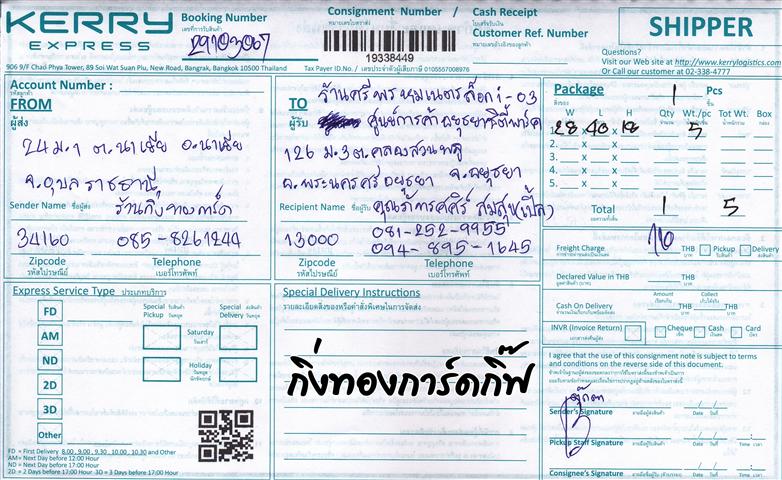 KERRY
EXPRESS
Booking Number
เลขที่การรับสินค้า
Consignment Number /
หมายเลขใบตราส่ง
19338449
Cash Receipt
ใบเสร็จรับเงิน
Customer Ref. Number
หมายเลขอ้างอิงของลูกค้า
SHIPPER
Questions?
Visit our Web site at http://www.kerrylogistics.com
Or Call our customer at 02-338-4777
906 9/F Chao Phya Tower, 89 Soi Wat Suan Plu, New Road, Bangrak, Bangkok 10500 Thailand
Tax Payer ID.No. / เลขประจำตัวผู้เสียภาษี 0105557008976
Account Number :
รหัสลูกค้า
FROM
ผู้ส่ง
24 ม.1 ต.นาเยีย อ.นาเยีย
จ.อุบลราชธานี
Sender Name ชื่อผู้ส่ง ร้านกิ่งทองการ์ด
34160 085-8261244
Zipcode Telephone
รหัสไปรษณีย์ เบอร์โทรศัพท์
TO
ผู้รับ
ศูนย์การค้าอยุธยาซิตี้พาร์ค
126 ม.3 ต.คลองสวนพลู
อ.พระนครศรีอยุธยา จ.อยุธยา
Recipient Name ชื่อผู้รับ
081-252-9955
13000 094-895-1645
Zipcode Telephone
รหัสไปรษณีย์ เบอร์โทรศัพท์
Package 1 Pcs
สิ่งของ ชิ้น
W L H Qty Wt./pc Tot Wt. Box
28 x 40 x 18 5
2. x x
3. x x
4. x x
5. x x
Total 1 5
Freight Charge 110 THB Pickup Delivery
Declared Value in THB THB
Amount Collect
Cash On Delivery THB THB
INVR (Invoice Return) Cheque Cash Card
I agree that the use of this consignment note is subject to terms
and conditions on the reverse side of this document.
Sender's Signature
Pickup Staff Signature
Consignee's Signature
Express Service Type ประเภทบริการ
FD
AM
ND
2D
3D
Other
Special Pickup
Special Delivery
Saturday
วันเสาร์
Holiday
วันหยุด
นักขัตฤกษ์
FD = First Delivery 8.00 , 9.00 , 9.30 , 10.00 , 10.30 and Other
AM = Next Day before 12:00 Hour
ND = Next Day before 17:00 Hour
2D = 2 Days before 17:00 Hour 3D = 3 Days before 17:00 Hour
Special Delivery Instructions
รายละเอียดสิ่งของหรือคำสั่งพิเศษในการจัดส่ง
กิ่งทองการ์ดกิ๊ฟ